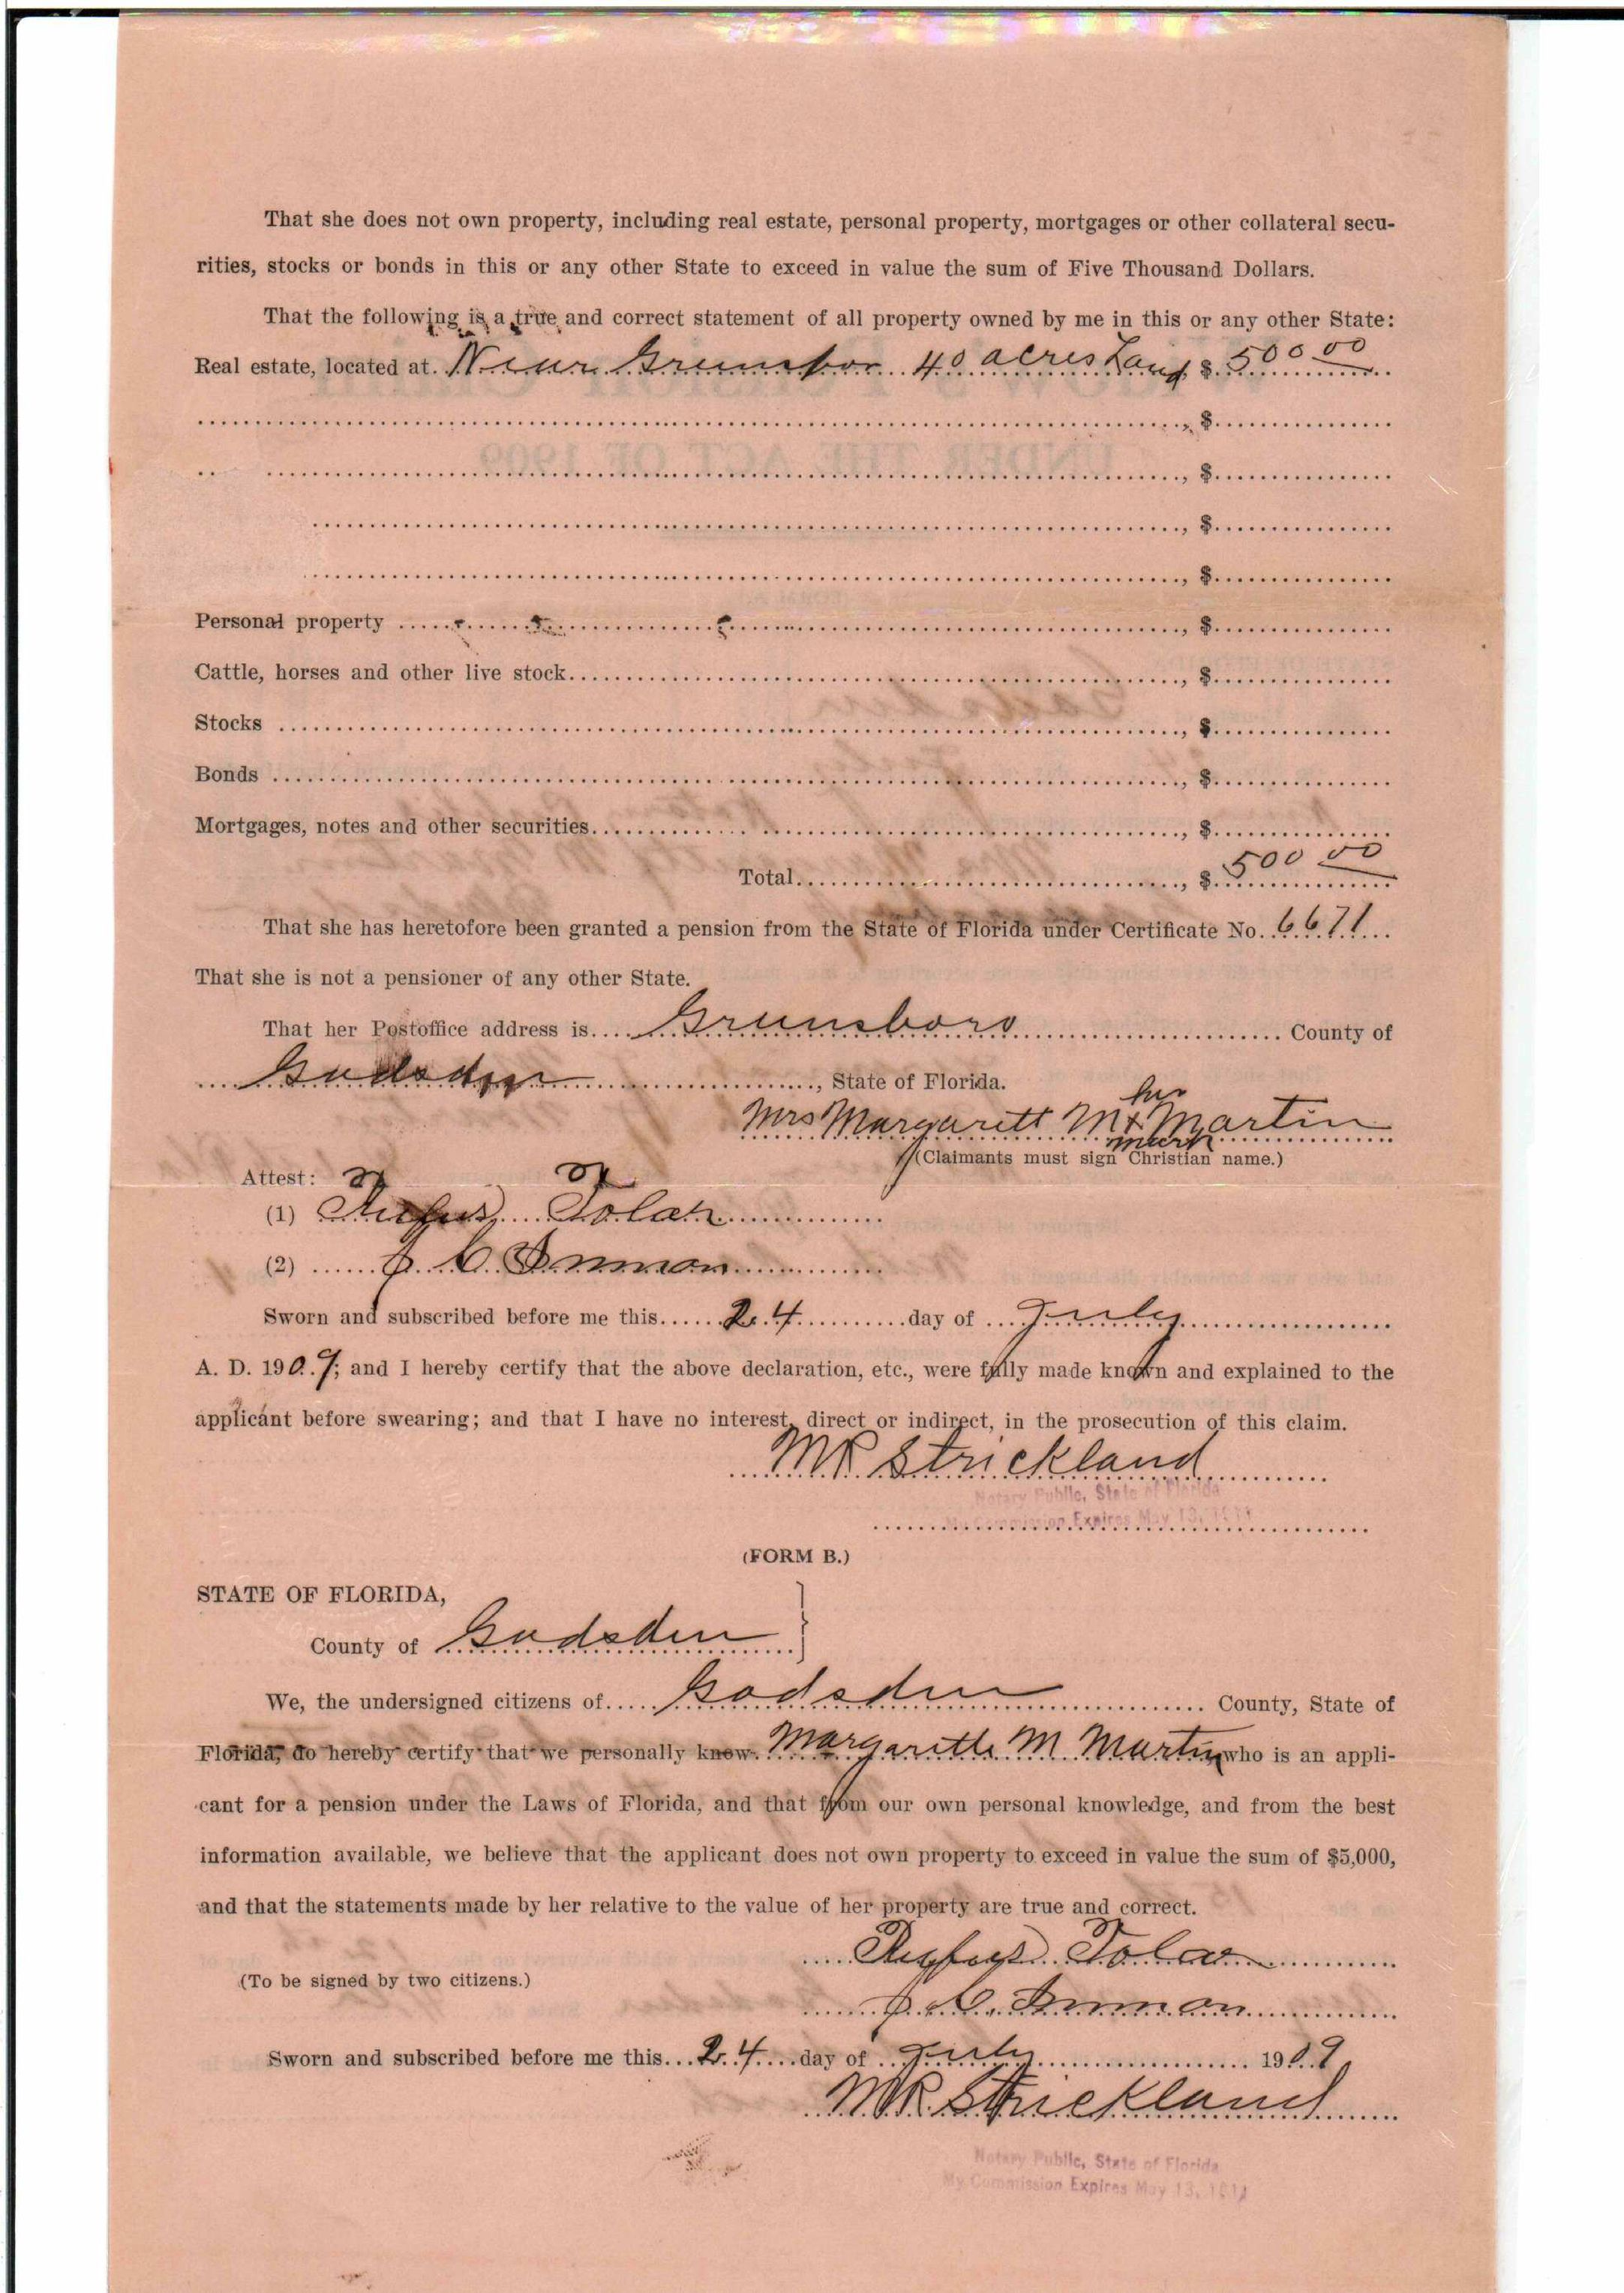 That she does not own property, including real estate, personal property, mortgages or other collateral secu-
rities, stocks or bonds in this or any other State to exceed in value the sum of Five Thousand Dollars.
That the following is a true and correct statement of all property owned by me in this or any other State:
Real estate, located at. Near Greensbor 40 acres Land $ 500 00
, $
, $
, $
, $
Personal property , $
Cattle, horses and other live stock , $
Stocks , $
Bonds , $
Mortgages, notes and other securities , $
Total , $ 500 00
That she has heretofore been granted a pension from the State of Florida under Certificate No. 6671
That she is not a pensioner of any other State.
That her Postoffice address is Greensboro County of
Gadsden , State of Florida.
her
Mrs Margarett M x Martin
mark
(Claimants must sign Christian name.)
Attest:
(1) Rufus Tolar
(2) J. C. Inman
Sworn and subscribed before me this 24 day of July
A. D. 1909; and I hereby certify that the above declaration, etc., were fully made known and explained to the
applicant before swearing; and that I have no interest, direct or indirect, in the prosecution of this claim.
MR Strickland
Notary Public, State of Florida
My Commission Expires May 13, 1911
(FORM B.)
STATE OF FLORIDA,
County of Gadsden
We, the undersigned citizens of Gadsden County, State of
Florida, do hereby certify that we personally know Margarette M Martin who is an appli-
cant for a pension under the Laws of Florida, and that from our own personal knowledge, and from the best
information available, we believe that the applicant does not own property to exceed in value the sum of $5,000,
and that the statements made by her relative to the value of her property are true and correct.
Rufus Tolar
(To be signed by two citizens.)
J. C. Inman
Sworn and subscribed before me this 24 day of July 1909
MR Strickland
Notary Public, State of Florida
My Commission Expires May 13, 1911